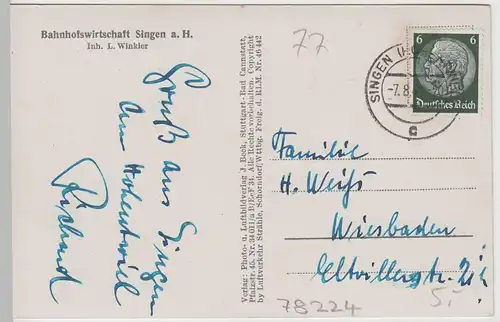 Bahnhofswirtschaft Singen a. H.
Inh. L. Winkler
Gruß aus Singen
am Hohentwiel
Richard
Verlag: Photo- u. Luftbildverlag J. Beck, Stuttgart-Bad Cannstatt,
Pfalzstr. 45. Nr. 34 011/a R/E & F 34. Alle Rechte vorbehalten. Copyright
by Luftverkehr Strähle, Schorndorf/Wttbg. Freig. d. RLM. Nr. 46 442
77
SINGEN
-7.8.
c
6 6
Deutsches Reich
Familie
H. Weiß
Wiesbaden
Eltvillerstr.
78224
5,-